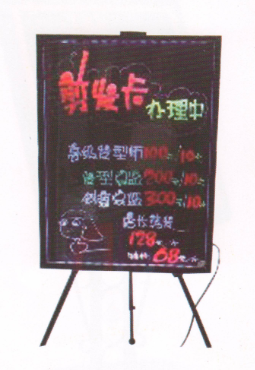 剪发卡
办理中
高级发型师100元/10次
发型总监200元/10次
创意总监300元/10次
128元
68元/次